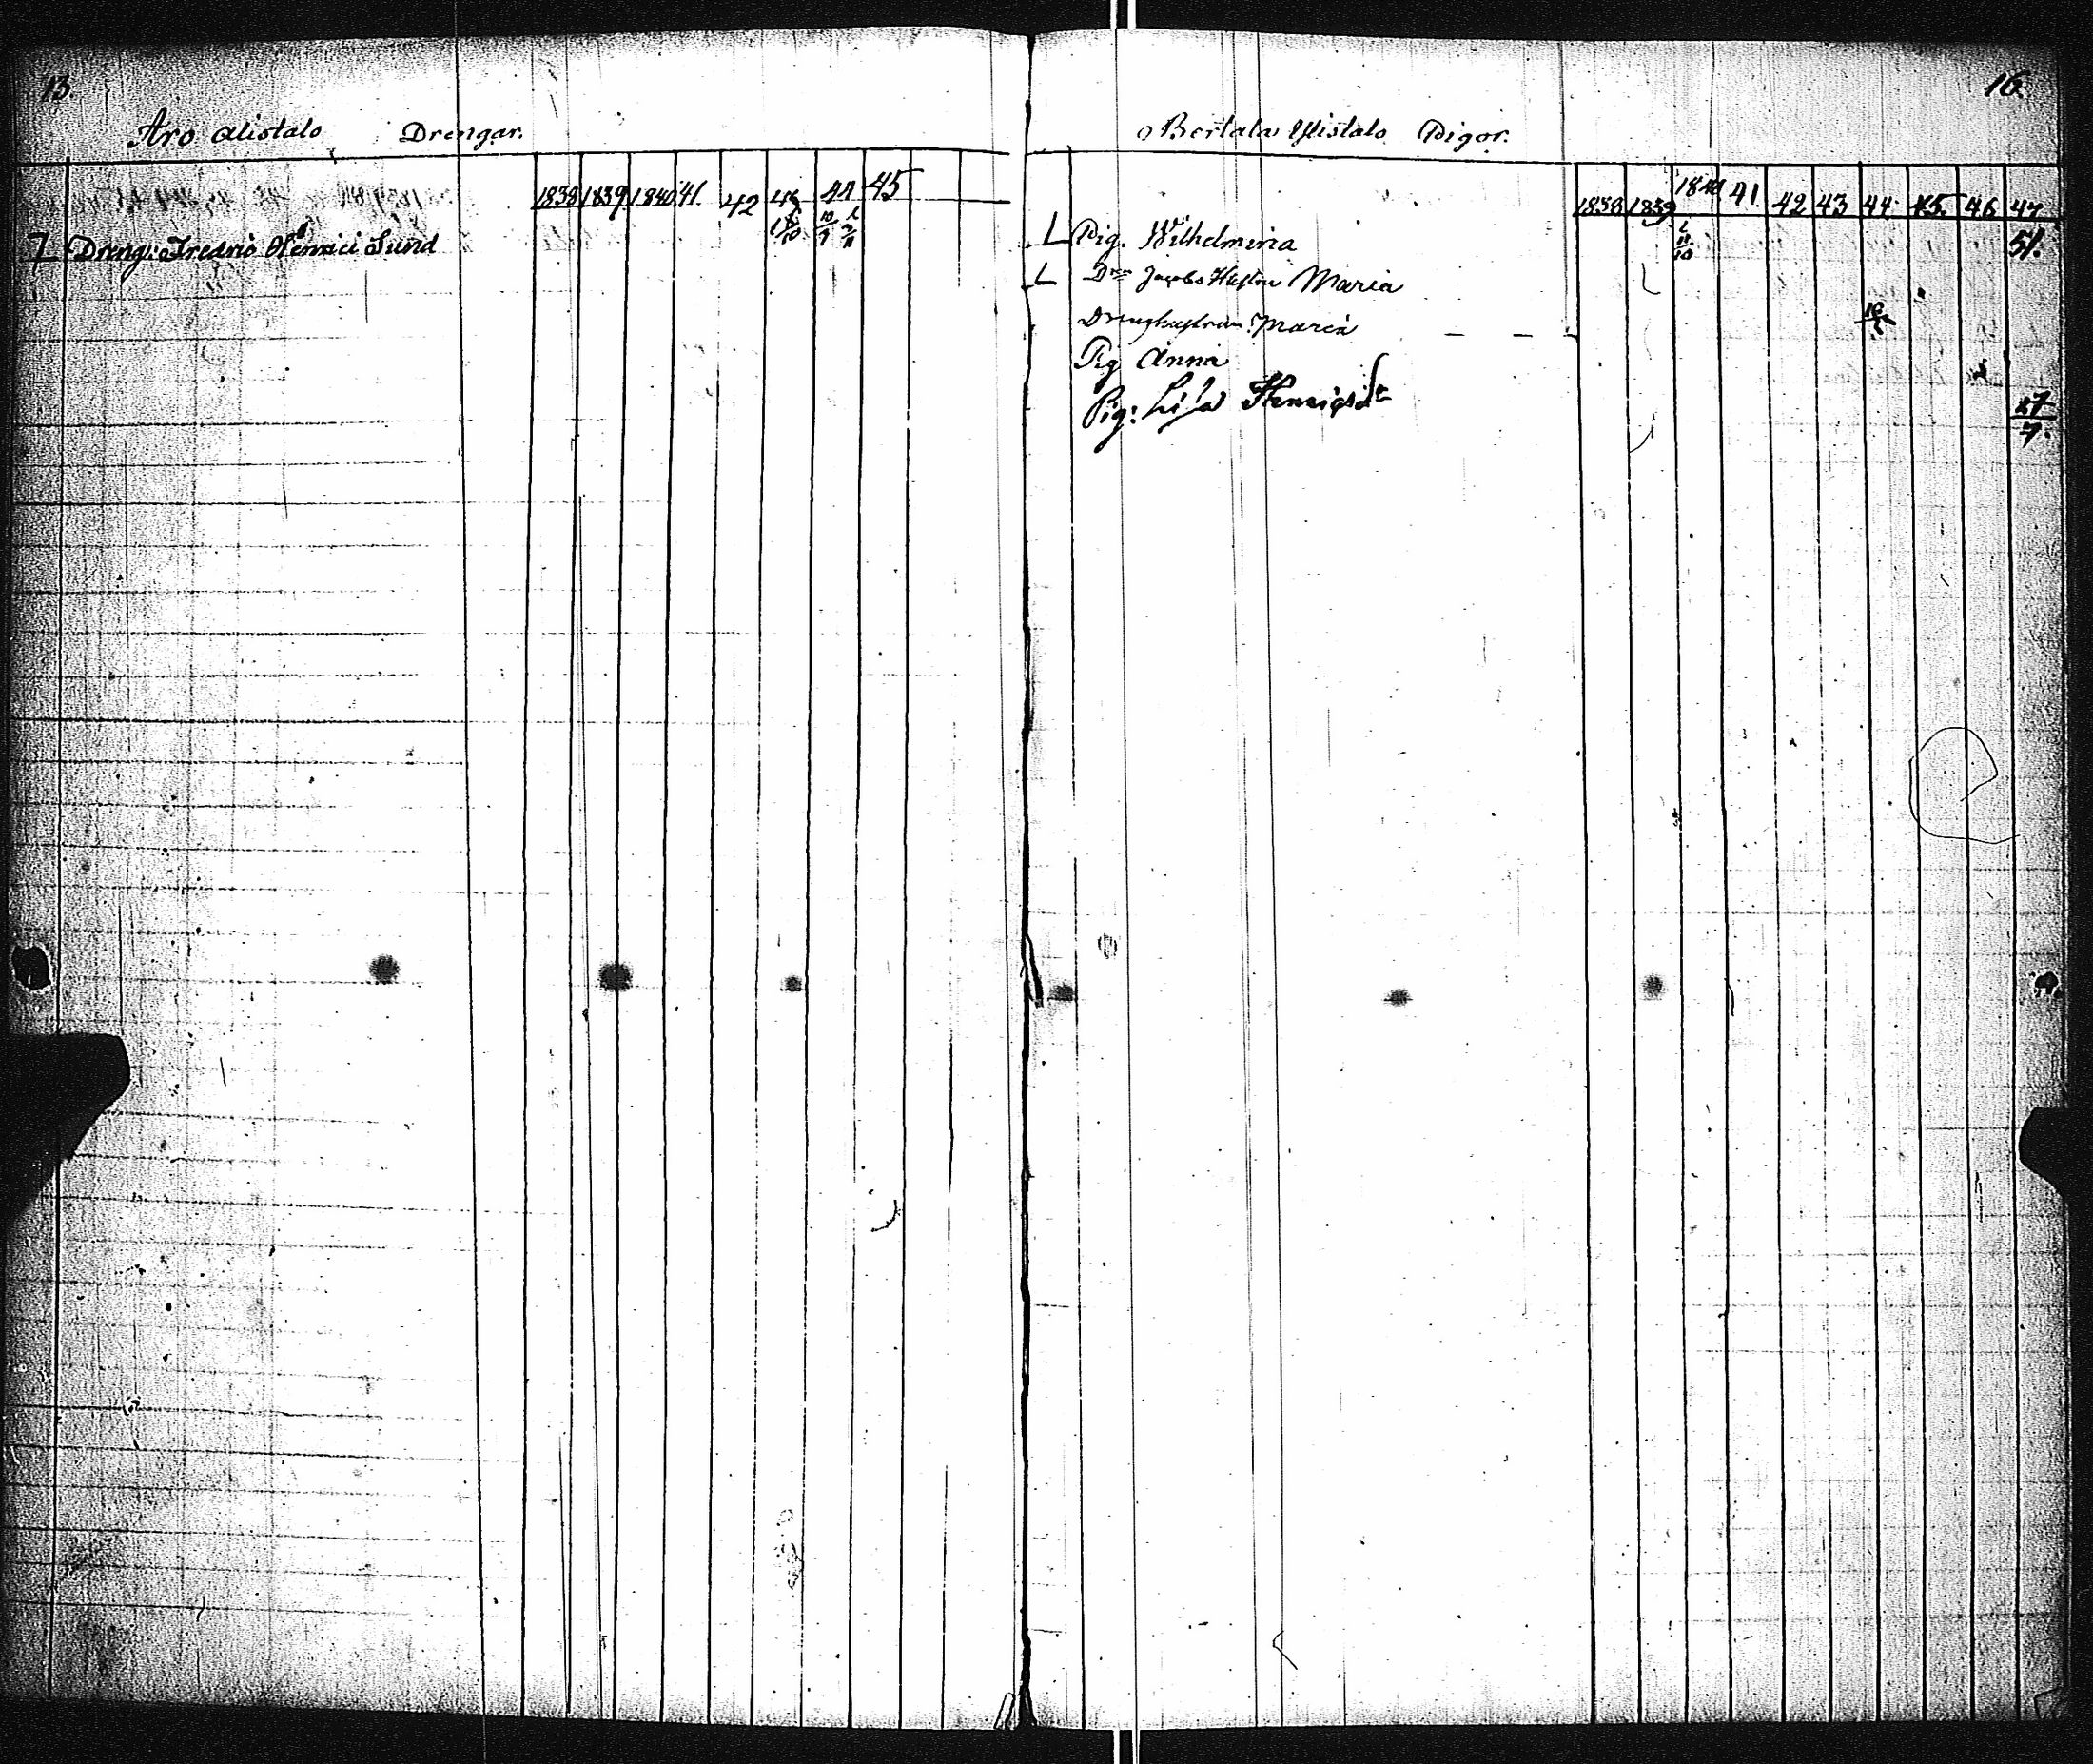 13.
Aro Alistalo Drengar.
1838 1839 1840 41. 42 43 44 45
Dreng: Fredric Henrici Sund
16.
Bertala Ylistalo Pigor.
1838 1839 1840 41 42 43 44. 45. 46 47
L Pig. Wilhelmina 51.
L Drn Jacobs Hustru Maria
Drenghustrun: Maria
Pig Anna
Pig: Lisa Henricsdr 27/7.